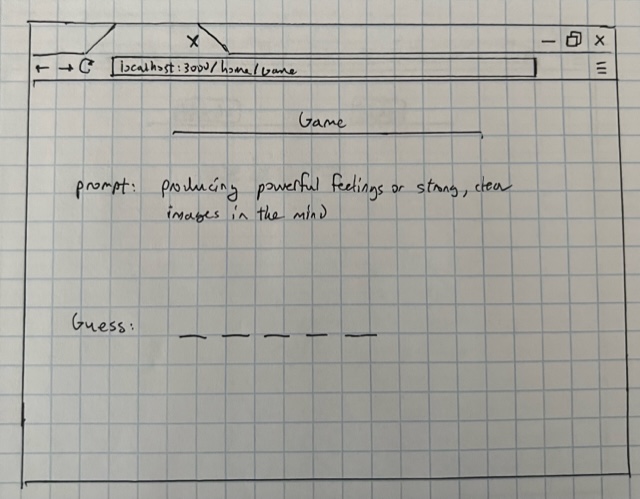 localhost:3000/home/Game
Game
prompt: producing powerful feelings or strong, clear
images in the mind
Guess: _ _ _ _ _